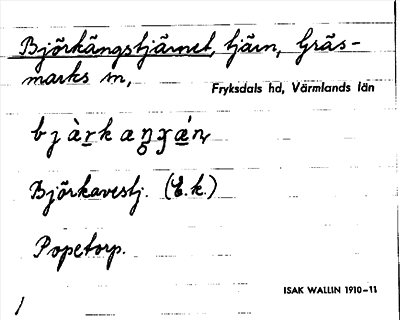 Björkängstjärnet, tjärn, Gräs-
marks sn,
Fryksdals hd, Värmlands län
Björkavestj. (E.k.)
Popetorp.
ISAK WALLIN 1910-11
1